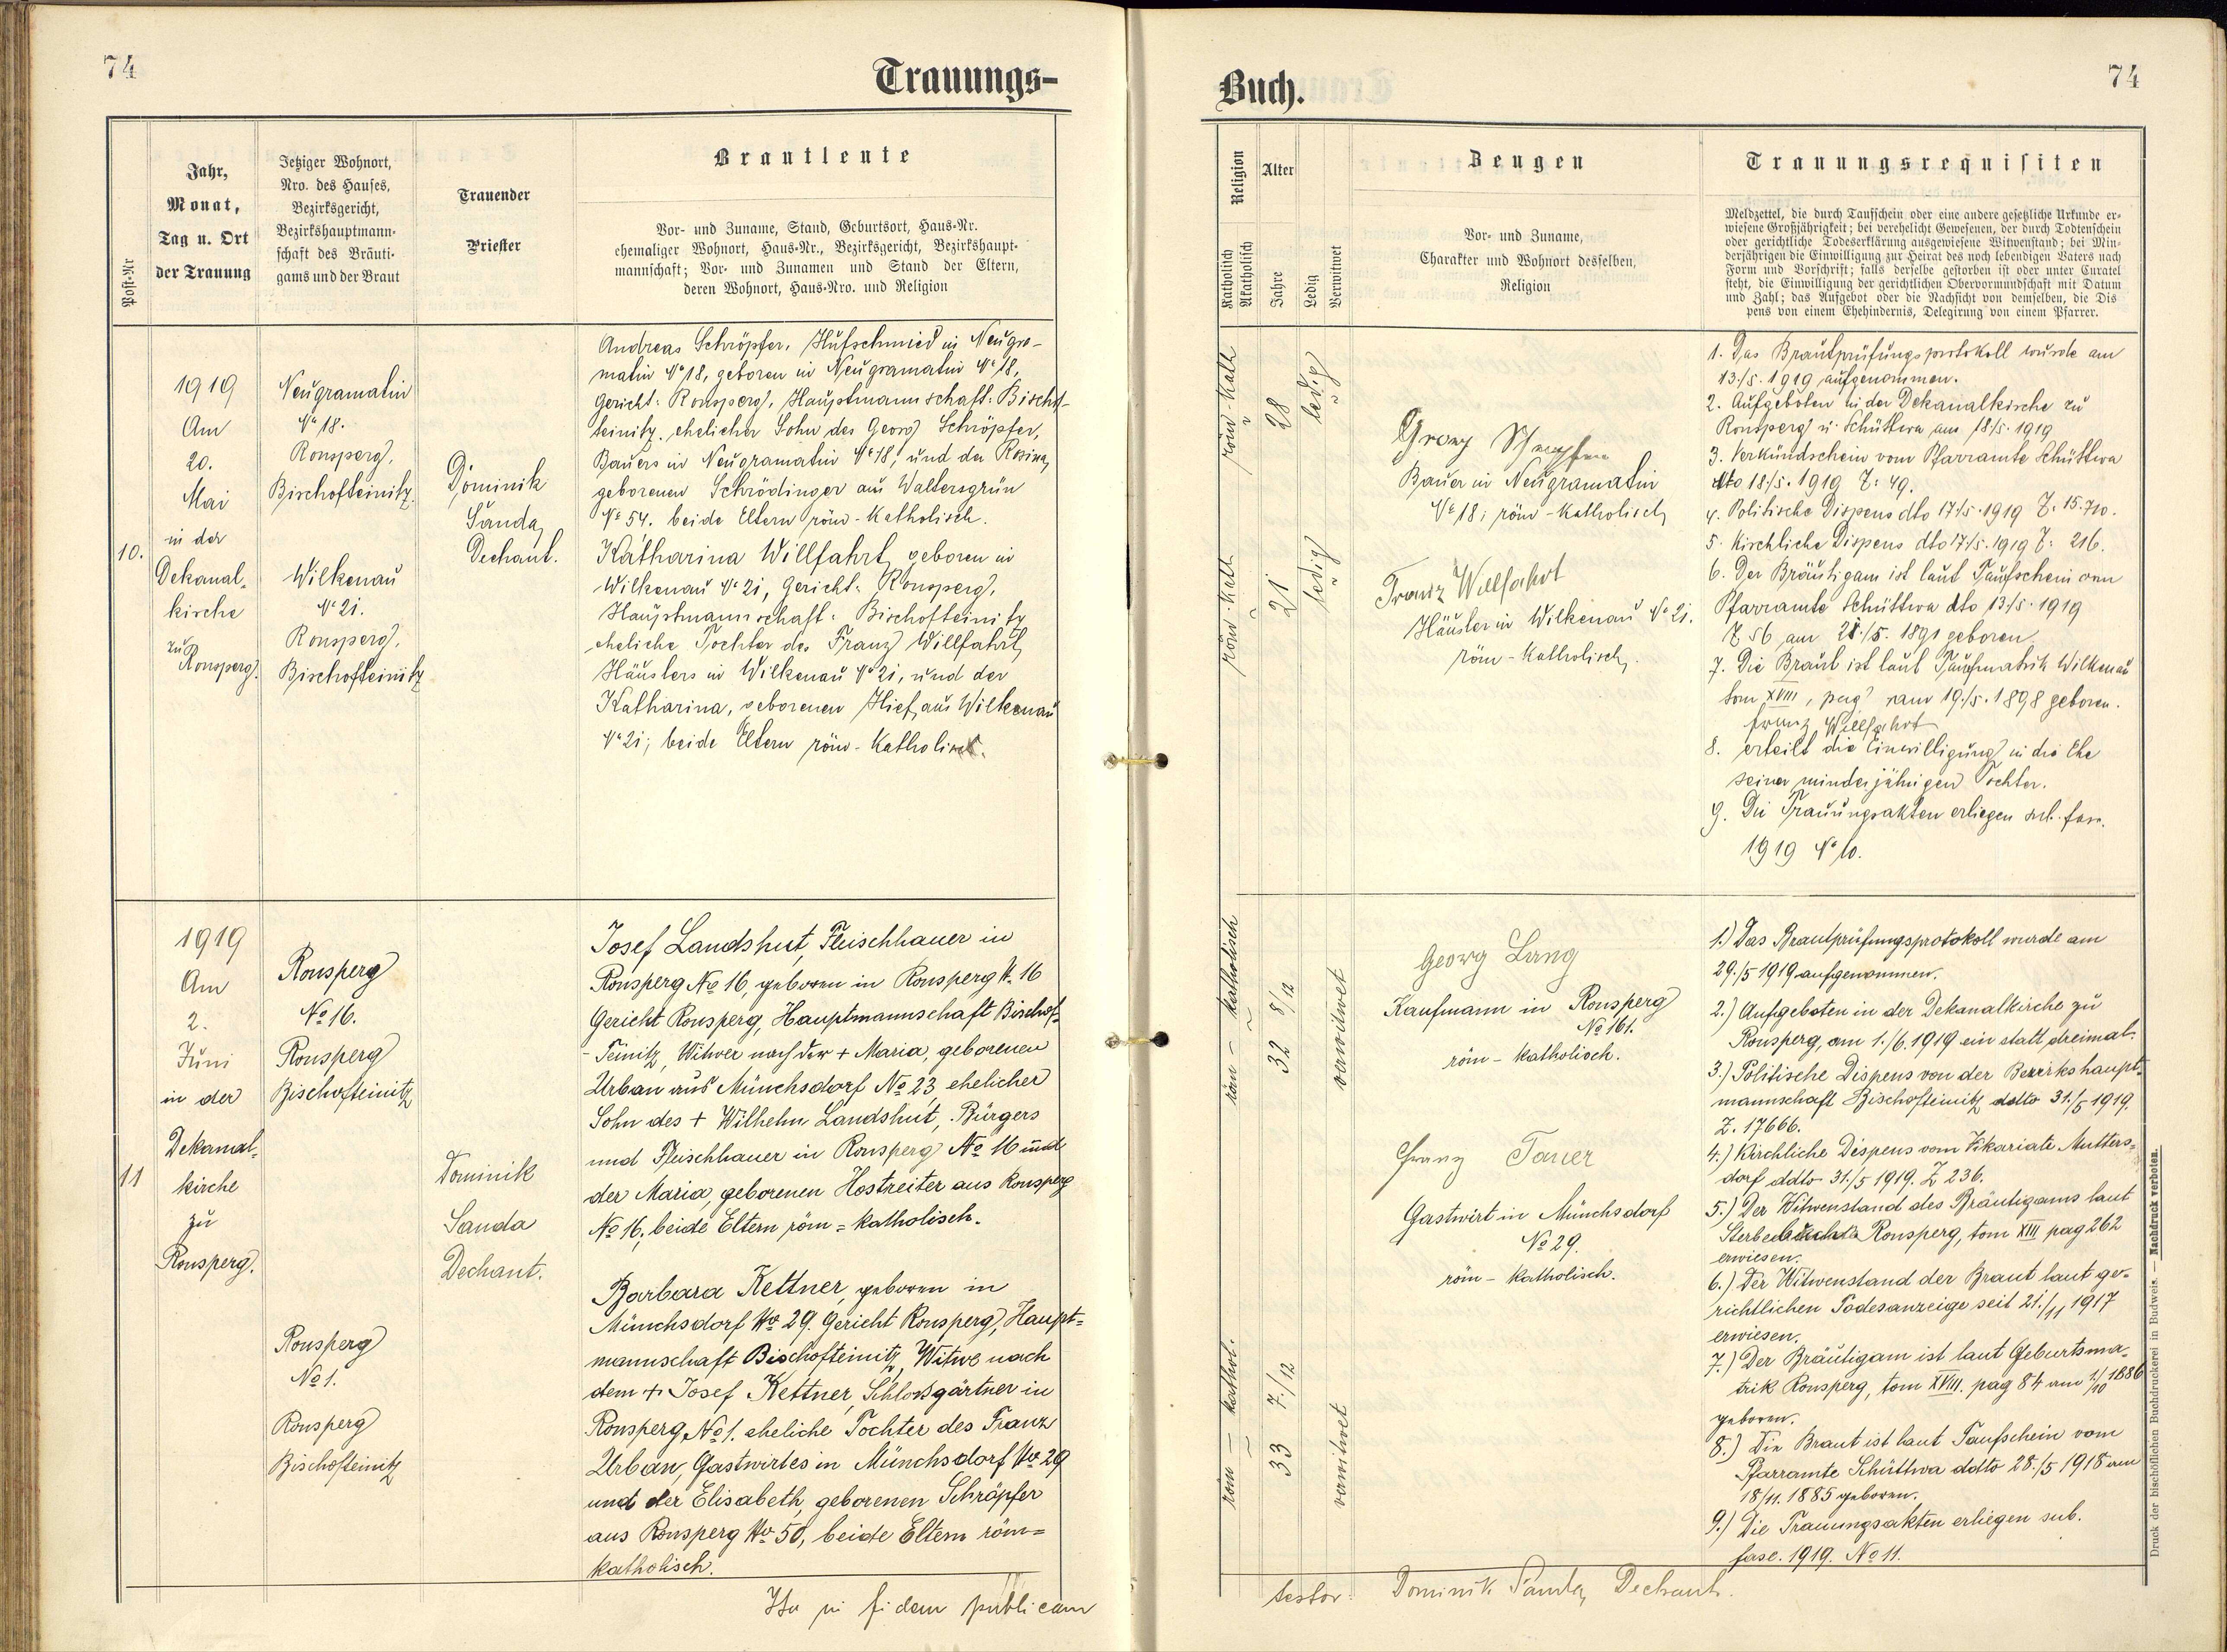 74
Trauungs-
Post-Nr
Jahr,
Monat,
Tag u. Ort
der Trauung
Jetziger Wohnort,
Nro. des Hauses,
Bezirksgericht,
Bezirkshauptmann-
schaft des Bräuti-
gams und der Braut
Trauender
Priester
Brautleute
Vor- und Zuname, Stand, Geburtsort, Haus-Nr.
ehemaliger Wohnort, Haus-Nr., Bezirksgericht, Bezirkshaupt-
mannschaft; Vor- und Zunamen und Stand der Eltern,
deren Wohnort, Haus-Nro. und Religion
10.
1919
Am
20.
Mai
in der
Dekanal-
kirche
zu
Ronsperg.
Neugramatin
No 18.
Ronsperg,
Bischofteinitz.
Wilkenau
No 21.
Ronsperg,
Bischofteinitz
Dominik
Sanda,
Dechant.
Andreas Schröpfer, Hufschmied in Neugra-
matin No 18, geboren in Neugramatin No 18,
Gericht: Ronsperg, Hauptmannschaft: Bischof-
teinitz, ehelicher Sohn des Georg Schröpfer,
Bauers in Neugramatin No 18, und der Rosina,
geborenen Schrödinger aus Waltersgrün
No 54. beide Eltern röm-katholisch.
Katharina Willfahrt, geboren in
Wilkenau No 21, Gericht: Ronsperg,
Hauptmannschaft: Bischofteinitz
eheliche Tochter des Franz Willfahrt,
Häuslers in Wilkenau No 21, und der
Katharina, geborenen Hief, aus Wilkenau
No 21; beide Eltern röm-katholisch.
11
1919
Am
2.
Juni
in der
Dekanal-
kirche
zu
Ronsperg.
Ronsperg
No 16.
Ronsperg
Bischofteinitz
Ronsperg
No 1.
Ronsperg
Bischofteinitz
Dominik
Sanda
Dechant.
Josef Landshut, Fleischhauer in
Ronsperg No 16, geboren in Ronsperg N. 16
Gericht Ronsperg, Hauptmannschaft Bischof-
-Teinitz, Witwer nach der + Maria, geborenen
Urban aus Münchsdorf No 23, ehelicher
Sohn des + Wilhelm Landshut, Bürgers
und Fleischhauer in Ronsperg No 16 und
der Maria, geborenen Hostreiter aus Ronsperg
No 16, beide Eltern röm=katholisch.
Barbara Kettner, geboren in
Münchsdorf No 29. Gericht Ronsperg, Haupt=
mannschaft Bischofteinitz, Witwe nach
dem + Josef Kettner, Schloßgärtner in
Ronsperg No 1. eheliche Tochter des Franz
Urban, Gastwirtes in Münchsdorf No 29
und der Elisabeth, geborenen Schröpfer
aus Ronsperg No 50, beide Eltern röm=
katholisch.
Ita in fidem publicam
Buch.
74
Religion
Katholisch
Akatholisch
Alter
Jahre
Ledig
Verwitwet
Zeugen
Vor- und Zuname,
Charakter und Wohnort desselben,
Religion
Trauungsrequisiten
Meldzettel, die durch Taufschein oder eine andere gesetzliche Urkunde er-
wiesene Großjährigkeit; bei verehelicht Gewesenen, der durch Todtenschein
oder gerichtliche Todeserklärung ausgewiesene Witwenstand; bei Min-
derjährigen die Einwilligung zur Heirat des noch lebendigen Vaters nach
Form und Vorschrift; falls derselbe gestorben ist oder unter Curatel
steht, die Einwilligung der gerichtlichen Obervormundschaft mit Datum
und Zahl; das Aufgebot oder die Nachsicht von demselben, die Dis
pens von einem Ehehindernis, Delegirung von einem Pfarrer.
röm-kath
28
ledig
röm-kath
21
ledig
Georg Schröpfer
Bauer in Neugramatin
No 18; röm-katholisch
Franz Willfahrt
Häusler in Wilkenau No 21.
röm-katholisch.
1. Das Brautprüfungsprotokoll wurde am
13./5. 1919 aufgenommen.
2. Aufgeboten in der Dekanalkirche zu
Ronsperg u. Schüttwa am 18/5. 1919
3. Verkündschein vom Pfarramte Schüttwa
dto 18/5. 1919 Z: 49.
4. Politische Dispens dto 17/5. 1919 Z. 15.710.
5. Kirchliche Dispens dto 17/5. 1919 Z: 216.
6. Der Bräutigam ist laut Taufschein vom
Pfarramte Schüttwa dto 13/5. 1919
Z 56 am 21./5. 1891 geboren.
7. Die Braut ist laut Taufmatrik Wilkenau
tom XVIII, pag am 19./5. 1898 geboren.
Franz Willfahrt
8. erteilt die Einwilligung in die Ehe
seiner minderjährigen Tochter.
9. Die Trauungsakten erliegen sub. fasc.
1919 No 10.
röm - katholisch
32 8/12
verwitwet
röm - kathol.
33 7/12
verwitwet
Georg Lang
Kaufmann in Ronsperg
No 161.
röm-katholisch.
Franz Tauer
Gastwirt in Münchsdorf
No 29.
röm-katholisch.
1.) Das Brautprüfungsprotokoll wurde am
29./5 1919 aufgenommen.
2.) Aufgeboten in der Dekanalkirche zu
Ronsperg, am 1./6. 1919 ein statt dreimal.
3.) Politische Dispens von der Bezirkshaupt=
mannschaft Bischofteinitz ddto 31./5 1919.
Z. 17666.
4.) Kirchliche Dispens vom Vikariate Mutters=
dorf ddto 31./5 1919. Z 236.
5.) Der Witwenstand des Bräutigams laut
Ronsperg, tom XIII pag 262
erwiesen.
6.) Der Witwenstand der Braut laut ge-
richtlichen Todesanzeige seit 21./11 1917
erwiesen.
7.) Der Bräutigam ist laut Geburtsma-
trik Ronsperg, tom XVIII. pag 84 am 1/10 1886
geboren.
8.) Die Braut ist laut Taufschein vom
Pfarramte Schüttwa ddto 28./5 1918 am
18/11. 1885 geboren.
9.) Die Trauungsakten erliegen sub.
fasc. 1919. No 11.
testor: Dominik Sanda, Dechant.
Druck der bischöflichen Buchdruckerei in Budweis. — Nachdruck verboten.